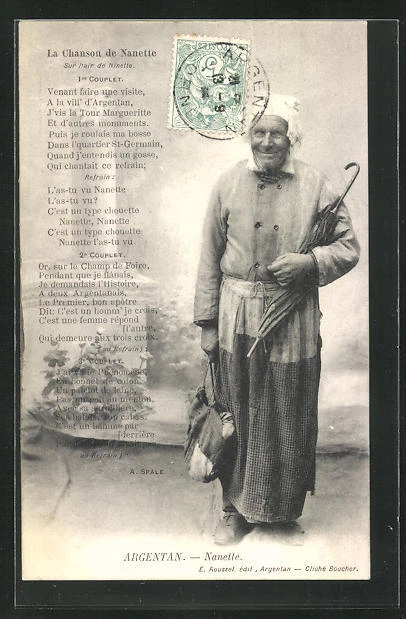 La Chanson de Nanette
Sur l'air de Ninette.
1er COUPLET.
Venant faire une visite,
A la vill' d'Argentan,
J'vis la Tour Margueritte
Et d'autres monuments.
Puis je roulais ma bosse
Dans l'quartier St-Germain,
Quand j'entendis un gosse,
Qui chantait ce refrain;
Refrain:
L'as-tu vu Nanette
L'as-tu vu?
C'est un type chouette
Nanette, Nanette
C'est un type chouette
Nanette l'as-tu vu
2e COUPLET.
Or, sur le Champ de Foire,
Pendant que je flânais,
Je demandais l'Histoire,
A deux Argentanais,
Le Premier, bon apôtre
Dit: C'est un homm' je crois,
C'est une femme répond
[l'autre,
Qui demeure aux trois croix.
(au Refrain):
3e COUPLET.
J'ai vu le Phénomène,
En bonnet de coton,
Un paletot de laine,
Pas un poil au menton,
Avec sa
son cabas,
C'est un homme par
[derrière
au Refrain)
A. SPALE
ARGENTAN
ARGENTAN. — Nanette.
E. Roussel, édit, Argentan — Cliché Boucher.